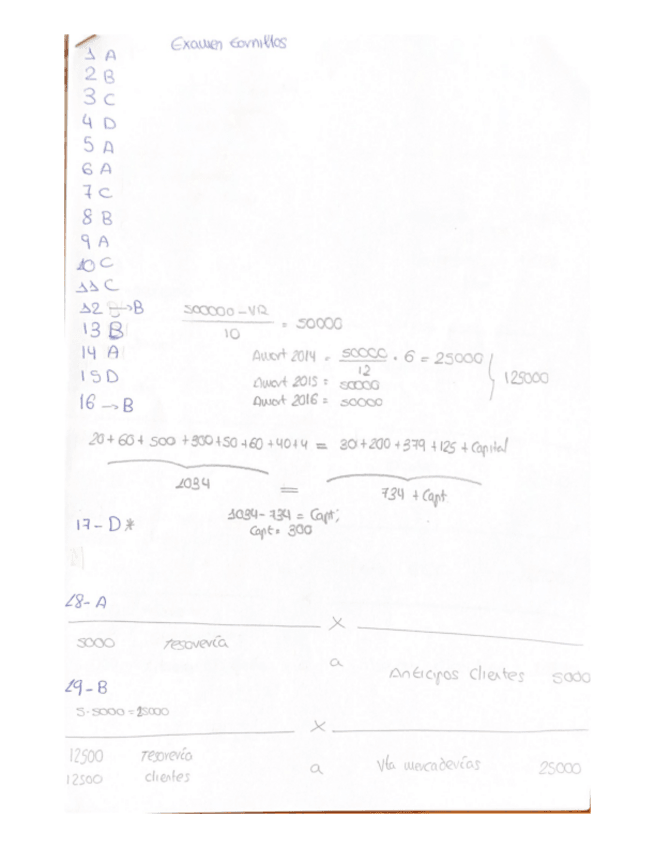 Examen tornillos
1 A
2 B
3 C
4 D
5 A
6 A
7 C
8 B
9 A
10 C
11 C
12 →B
500000 - VR / 10 = 50000
13 B
14 A
Amort 2014 = 50000 / 12 · 6 = 25000
15 D
Amort 2015 = 50000
125000
16 → B
Amort 2016 = 50000
20 + 60 + 500 + 300 + 50 + 60 + 40 + 4 = 30 + 200 + 379 + 125 + Capital
1034 = 734 + Capt
17 - D*
1034 - 734 = Capt;
Capt = 300
28 - A
X
5000 Tesorería
a Anticipos Clientes 5000
29 - B
5 · 5000 = 25000
X
12500 Tesorería
a Vta mercaderías 25000
12500 clientes